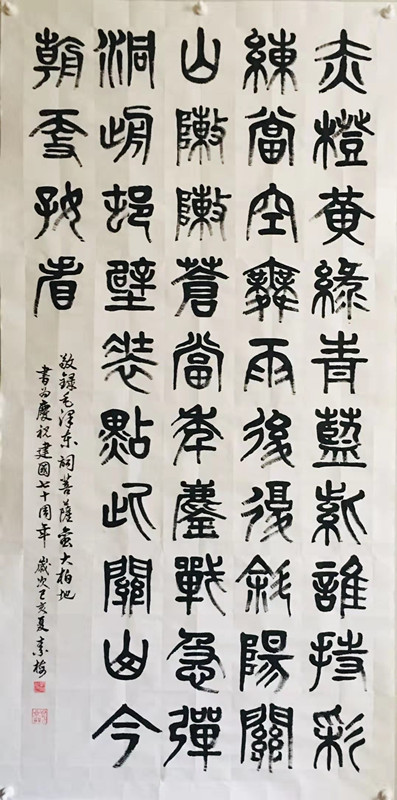 赤橙黄綠青藍紫誰持彩
練當空舞雨後復斜陽關
山陣陣蒼當年鏖戰急彈
洞前邨壁裝點此關山今
朝更好看
敬録毛澤东詞菩薩蛮大柏地
書為慶祝建國七十周年 歲次己亥夏 素梅